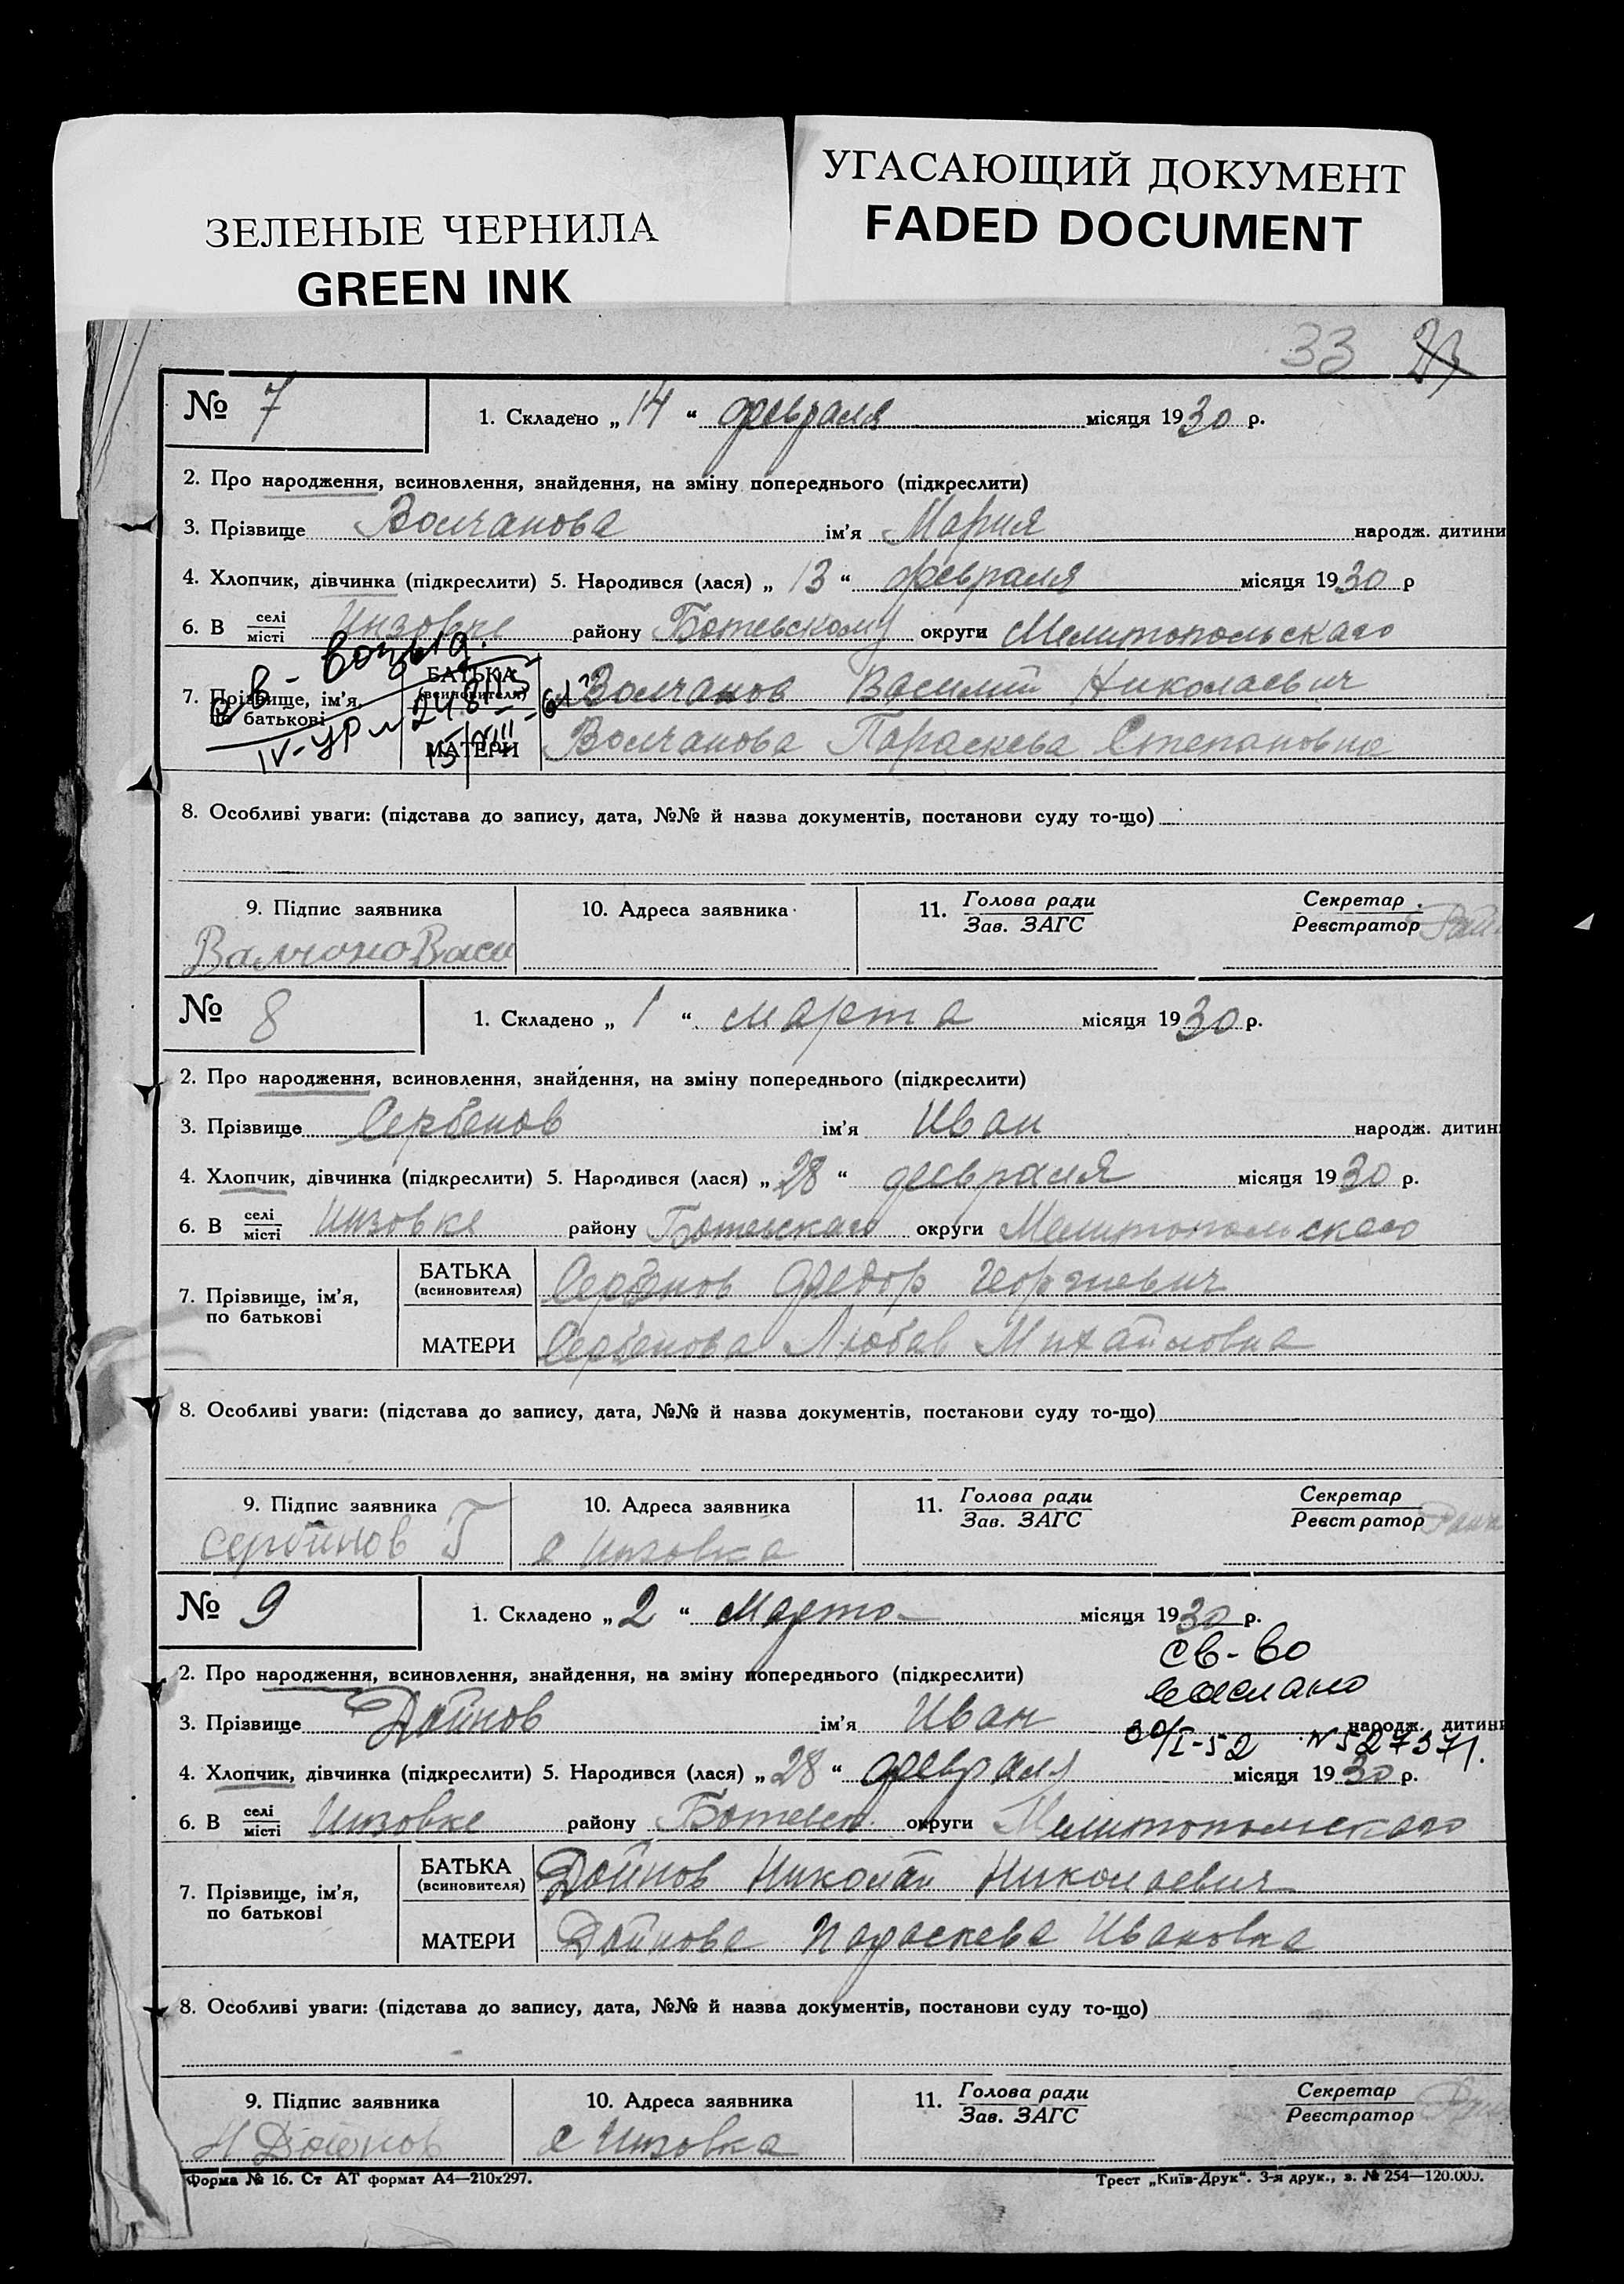 ЗЕЛЕНЫЕ ЧЕРНИЛА
GREEN INK
УГАСАЮЩИЙ ДОКУМЕНТ
FADED DOCUMENT
33
№ 7
1. Складено „14“ февраля місяця 1930 р.
2. Про народження, всиновлення, знайдення, на зміну попереднього (підкреслити)
3. Прізвище Волчанова ім'я Мария народж. дитини
4. Хлопчик, дівчинка (підкреслити) 5. Народився (лася) „13“ февраля місяця 1930 р
6. В селі/місті Инзовке району Ботевскому округи Мелитопольскаго
7. Прізвище, ім'я, по батькові
БАТЬКА (всиновителя) Волчанов Василий Николаевич
МАТЕРИ Волчанова Параскева Степановна
8. Особливі уваги: (підстава до запису, дата, №№ й назва документів, постанови суду то-що)
9. Підпис заявника
10. Адреса заявника
11. Голова ради/Зав. ЗАГС
Секретар/Реєстратор
№ 8
1. Складено „1“ марта місяця 1930 р.
2. Про народження, всиновлення, знайдення, на зміну попереднього (підкреслити)
3. Прізвище Сербенов ім'я Иван народж. дитин
4. Хлопчик, дівчинка (підкреслити) 5. Народився (лася) „28“ февраля місяця 1930 р.
6. В селі/місті Инзовке району Ботевскаго округи Мелитопольскаго
7. Прізвище, ім'я, по батькові
БАТЬКА (всиновителя) Сербенов Федор Георгиевич
МАТЕРИ Сербенова Любов Михайловна
8. Особливі уваги: (підстава до запису, дата, №№ й назва документів, постанови суду то-що)
9. Підпис заявника
10. Адреса заявника
11. Голова ради/Зав. ЗАГС
Секретар/Реєстратор
с Инзовка
№ 9
1. Складено „2“ Марта місяця 1930 р.
св-во
2. Про народження, всиновлення, знайдення, на зміну попереднього (підкреслити)
3. Прізвище Дойнов ім'я Иван народж. дитин
30/I-52 № 527371.
4. Хлопчик, дівчинка (підкреслити) 5. Народився (лася) „28“ февраля місяця 1930 р.
6. В селі/місті Инзовке району Ботевск. округи Мелитопольскаго
7. Прізвище, ім'я, по батькові
БАТЬКА (всиновителя) Дойнов Николай Николаевич
МАТЕРИ Дойнова Параскева Ивановна
8. Особливі уваги: (підстава до запису, дата, №№ й назва документів, постанови суду то-що)
9. Підпис заявника
10. Адреса заявника
11. Голова ради/Зав. ЗАГС
Секретар/Реєстратор
Н Дойнов
с Инзовка
Форма № 16. Ст АТ формат А4—210х297.
Трест „Київ-Друк“. 3-я друк., з. № 254—120.000.